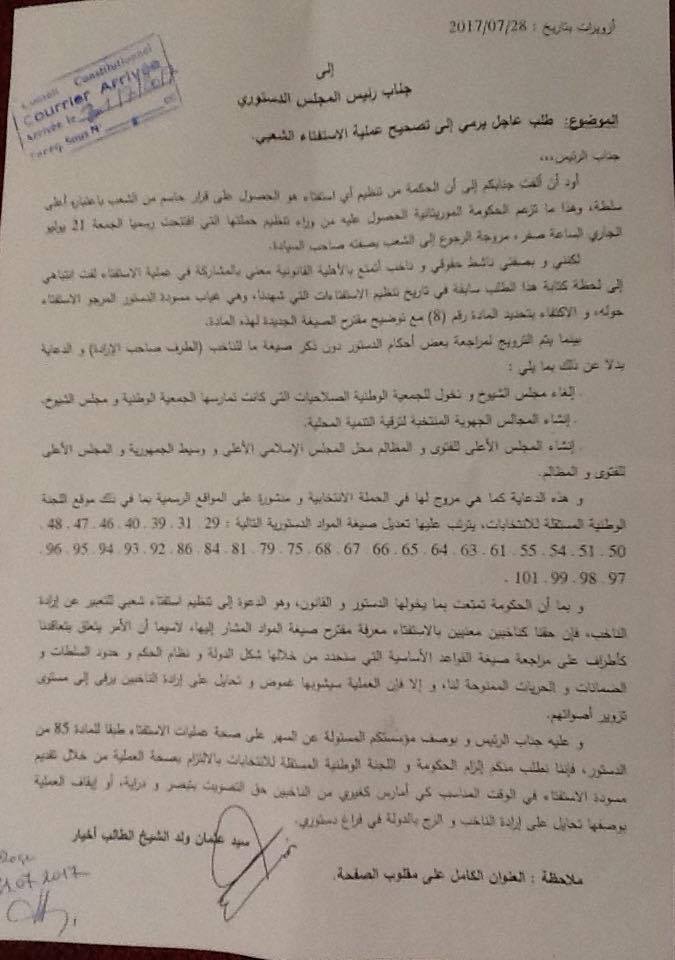 أزويرات بتاريخ : 2017/07/28
Conseil Constitutionnel
Courrier Arrivée
Arrivée le
Sous N°
إلى
جناب رئيس المجلس الدستوري
الموضوع: طلب عاجل يرمي إلى تصحيح عملية الاستفتاء الشعبي.
جناب الرئيس،،،
أود أن ألفت جنابكم إلى أن الحكمة من تنظيم أي استفتاء هو الحصول على قرار حاسم من الشعب باعتباره أعلى
سلطة، وهذا ما تزعم الحكومة الموريتانية الحصول عليه من وراء تنظيم حملتها التي افتتحت رسميا الجمعة 21 يوليو
الجاري الساعة صفر، مروجة الرجوع إلى الشعب بصفته صاحب السيادة.
لكنني و بصفتي ناشط حقوقي و ناخب أتمتع بالأهلية القانونية معني بالمشاركة في عملية الاستفتاء لفت انتباهي
إلى لحظة كتابة هذا الطلب سابقة في تاريخ تنظيم الاستفتاءات التي شهدنا، وهي غياب مسودة الدستور المرجو الاستفتاء
حوله، و الاكتفاء بتحديد المادة رقم (8) مع توضيح مقترح الصيغة الجديدة لهذه المادة.
بينما يتم الترويج لمراجعة بعض أحكام الدستور دون ذكر صيغة ما للناخب (الطرف صاحب الإرادة) و الدعاية
بدلا عن ذلك بما يلي :
. إلغاء مجلس الشيوخ و تخول للجمعية الوطنية الصلاحيات التي كانت تمارسها الجمعية الوطنية و مجلس الشيوخ.
. إنشاء المجالس الجهوية المنتخبة لترقية التنمية المحلية.
. إنشاء المجلس الأعلى للفتوى و المظالم محل المجلس الإسلامي الأعلى و وسيط الجمهورية و المجلس الأعلى
للفتوى و المظالم.
و هذه الدعاية كما هي مروج لها في الحملة الانتخابية و منشورة على المواقع الرسمية بما في ذلك موقع اللجنة
الوطنية المستقلة للانتخابات، يترتب عليها تعديل صيغة المواد الدستورية التالية : 29 . 31 . 39 . 40 . 46 . 47 . 48 .
50 . 51 . 54 . 55 . 61 . 63 . 64 . 65 . 66 67 . 68 . 75 . 79 . 81 . 84 . 86 . 92 . 93 . 94 . 95 . 96 .
97 . 98 . 99 . 101 .
و بما أن الحكومة تمتعت بما يخولها الدستور و القانون، وهو الدعوة إلى تنظيم استفتاء شعبي للتعبير عن إرادة
الناخب، فإن حقنا كناخبين معنيين بالاستفتاء معرفة مقترح صيغة المواد المشار إليها، لاسيما أن الأمر يتعلق بتعاقدنا
كأطراف على مراجعة صيغة القواعد الأساسية التي سنحدد من خلالها شكل الدولة و نظام الحكم و حدود السلطات و
الضمانات و الحريات الممنوحة لنا، و إلا فإن العملية سيشوبها غموض و تحايل على إرادة الناخبين يرقى إلى مستوى
تزوير أصواتهم.
و عليه جناب الرئيس و بوصف مؤسستكم المسئولة عن السهر على صحة عمليات الاستفتاء طبقا للمادة 85 من
الدستور، فإننا نطلب منكم إلزام الحكومة و اللجنة الوطنية المستقلة للانتخابات بالالتزام بصحة العملية من خلال تقديم
مسودة الاستفتاء في الوقت المناسب كي أمارس كغيري من الناخبين حق التصويت بتبصر و دراية، أو إيقاف العملية
بوصفها تحايل على إرادة الناخب و الزج بالدولة في فراغ دستوري.
سيد عثمان ولد الشيخ الطالب أخيار
ملاحظة : العنوان الكامل على مقلوب الصفحة.